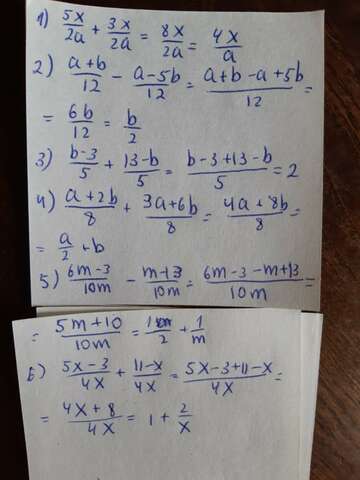 1) 5x/2a + 3x/2a = 8x/2a = 4x/a
2) a+b/12 - a-5b/12 = a+b-a+5b/12 =
= 6b/12 = b/2
3) b-3/5 + 13-b/5 = b-3+13-b/5 = 2
4) a+2b/8 + 3a+6b/8 = 4a+8b/8 =
= a/2 + b
5) 6m-3/10m - m-13/10m = 6m-3-m+13/10m =
= 5m+10/10m = 1/2 + 1/m
6) 5x-3/4x + 11-x/4x = 5x-3+11-x/4x =
= 4x+8/4x = 1 + 2/x